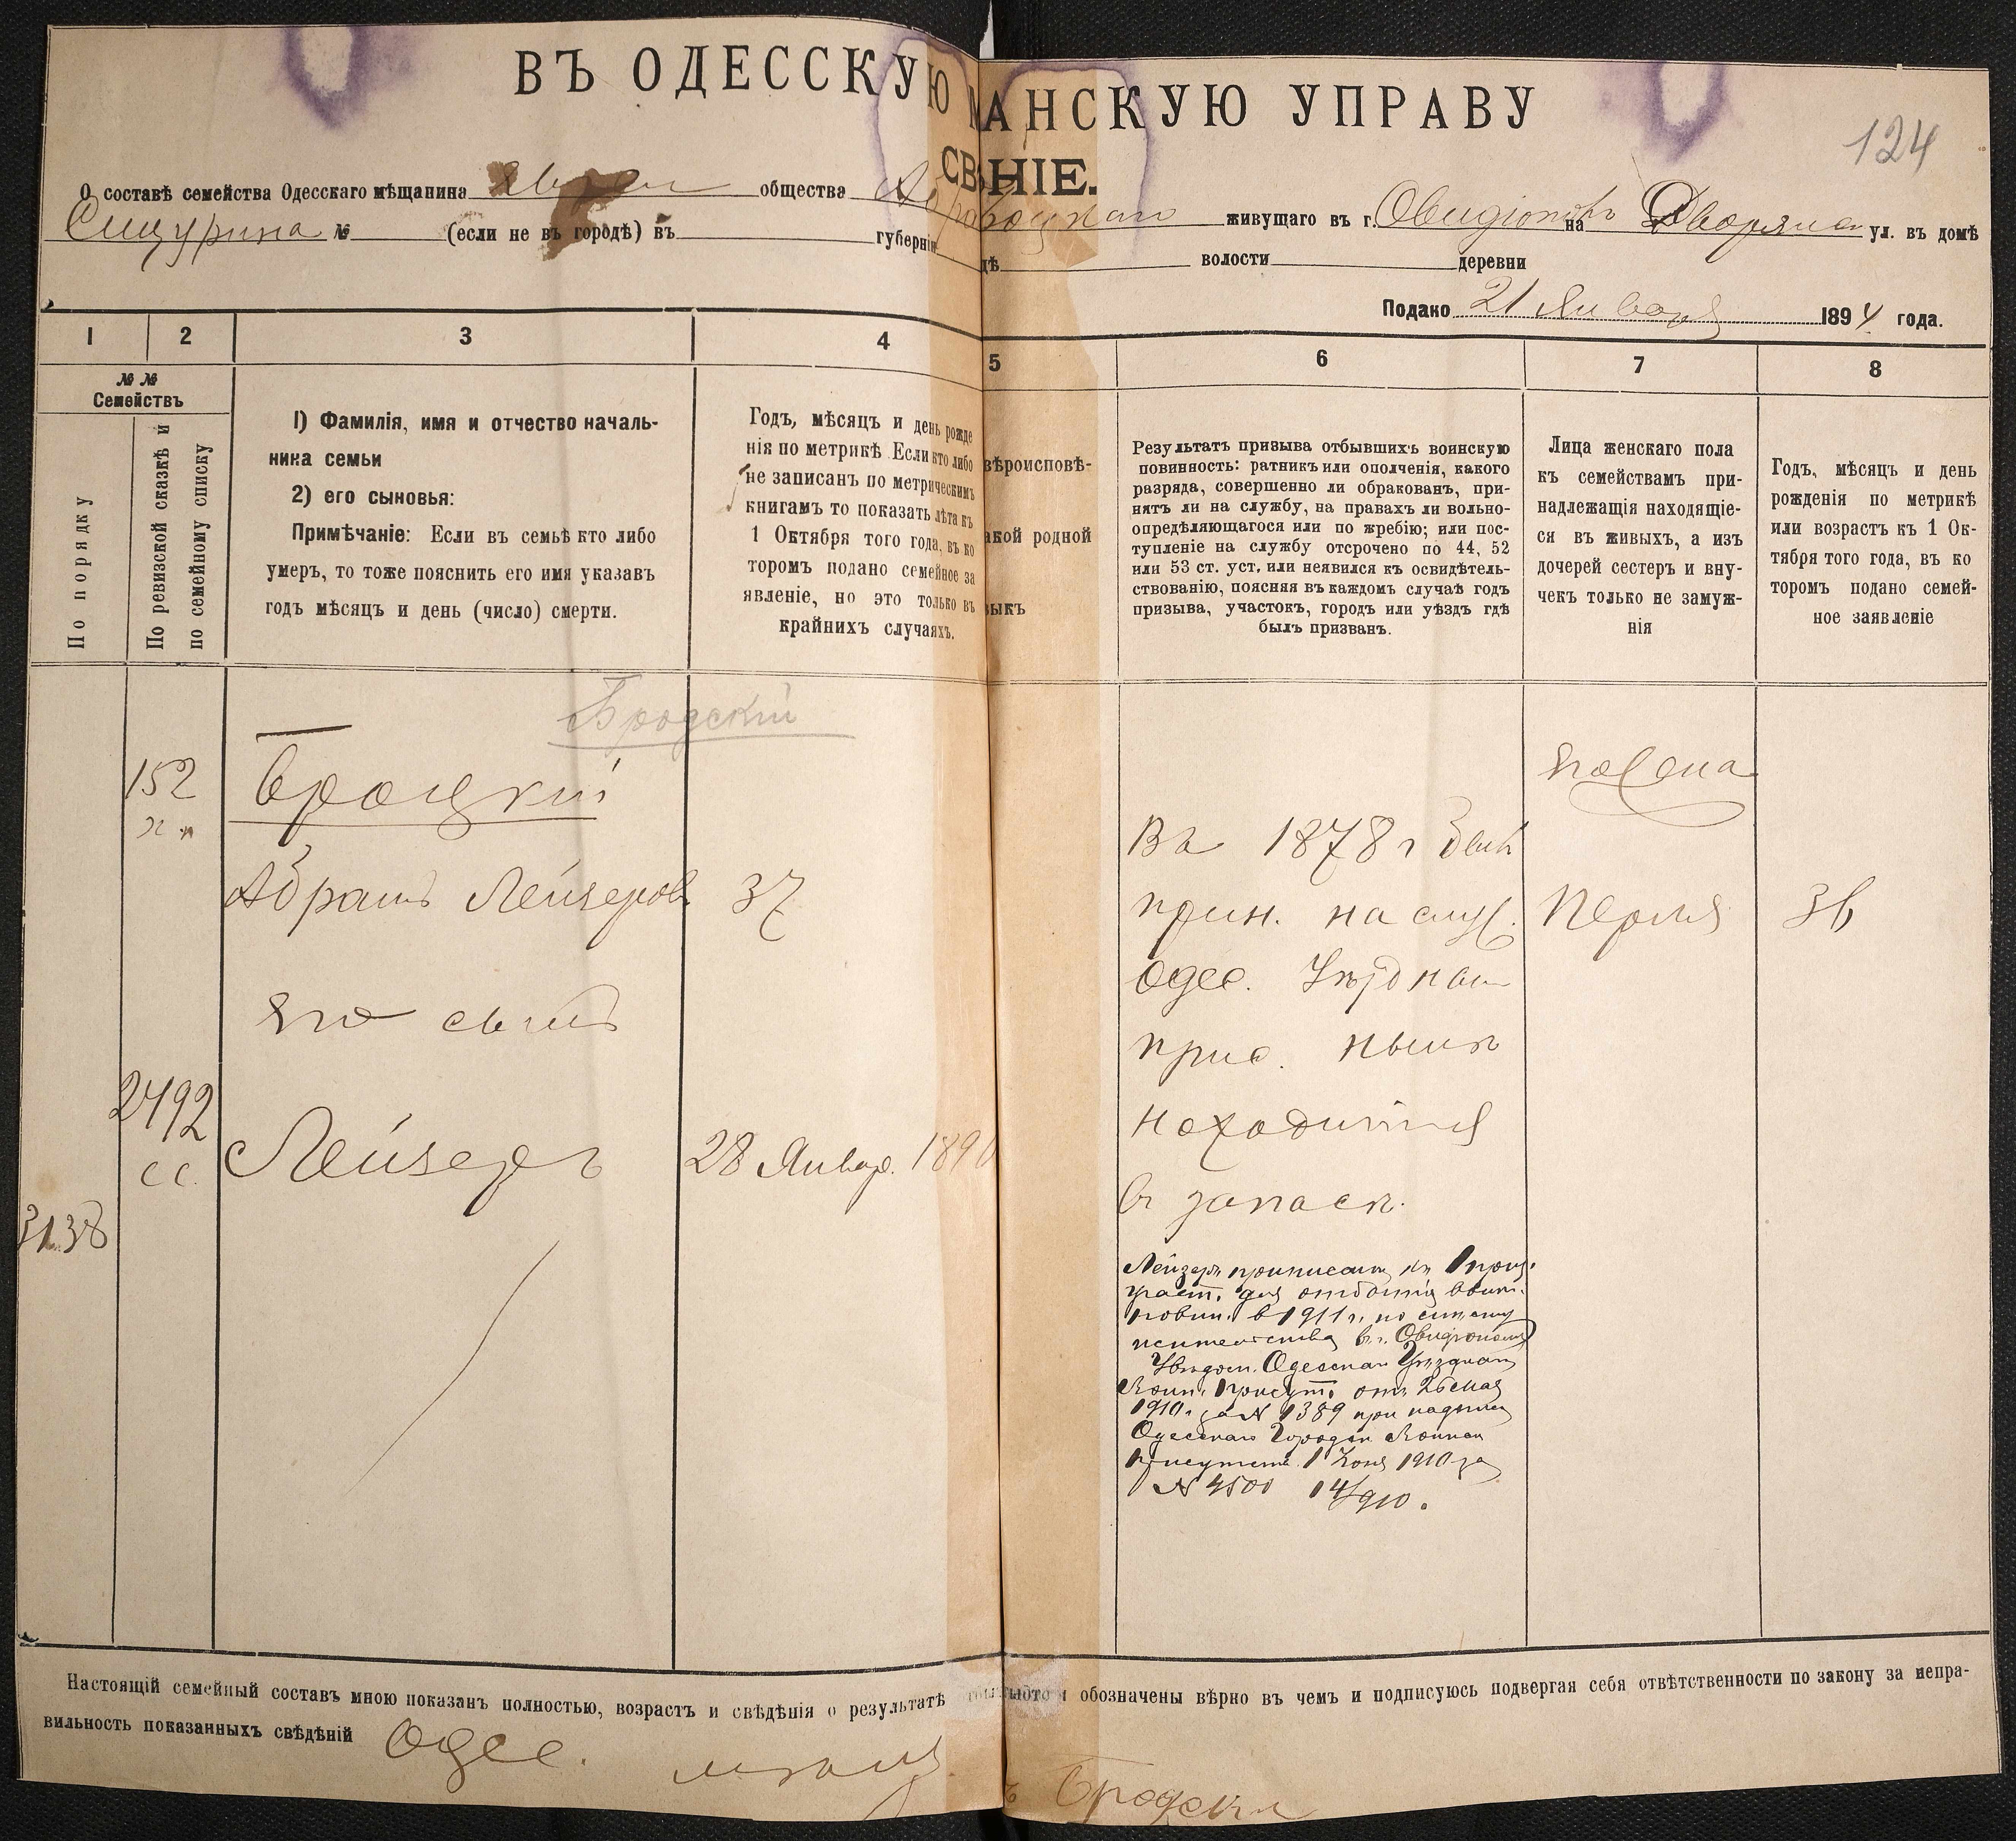 ВЪ ОДЕССКУЮ МѢЩАНСКУЮ УПРАВУ
124
СВ НІЕ.
О составѣ семейства Одесскаго мѣщанина Еврей общества Абрама Броцкаго живущаго въ г. Овидіополь на Дворянск ул. въ домѣ
Сицурина № (если не въ городѣ) въ губерніи дѣ волости деревни
Подако 21 Января 1894 года.
1 2 3 4 5 6 7 8
№ №
Семействъ
По порядку
По ревизской сказкѣ и
по семейному списку
1) Фамилія, имя и отчество началь-
ника семьи
2) его сыновья:
Примѣчаніе: Если въ семьѣ кто либо
умеръ, то тоже пояснить его имя указавъ
годъ мѣсяцъ и день (число) смерти.
Годъ, мѣсяцъ и день рожде
нія по метрикѣ Если кто либо
не записанъ по метрическимъ
книгамъ то показать лѣта къ
1 Октября того года, въ ко
торомъ подано семейное за
явленіе, но это только въ
крайнихъ случаяхъ.
вѣроисповѣ-
акой родной
зыкъ
Результатъ призыва отбывшихъ воинскую
повинность: ратникъ или ополченія, какого
разряда, совершенно ли обракованъ, при-
нятъ ли на службу, на правахъ ли вольно-
опредѣляющагося или по жребію; или пос-
тупленіе на службу отсрочено по 44, 52
или 53 ст. уст. или неявился къ освидѣтель-
ствованію, поясняя въ каждомъ случаѣ годъ
призыва, участокъ, городъ или уѣздъ гдѣ
былъ призванъ.
Лица женскаго пола
къ семействамъ при-
надлежащія находящіе-
ся въ живыхъ, а изъ
дочерей сестеръ и вну-
чекъ только не замуж-
нія
Годъ, мѣсяцъ и день
рожденія по метрикѣ
или возрастъ къ 1 Ок-
тября того года, въ ко
торомъ подано семей-
ное заявленіе
Бродскій
152 Броцкій
Абрамъ Лейзеров 37
Его сынъ
2492
сс. Лейзеръ 28 Январ. 189
3138
Въ 1878 г былъ
прин. на служ.
Одес. Уѣздным
прис. нынѣ
находится
въ запасѣ.
Его Жена
Перля 36
Лейзеръ приписанъ къ 1 приз.
участ. для отбытія воин.
повин. въ 1911 г. по
жительства въ г. Овидіополѣ
Увѣдом. Одесскаго Уѣзднаго
Воин. Присут. отъ 26 мая
1910 г. за № 1389 при надписи
Одесскаго Городск. Воинск
Присутств. 1 Іюня 1910 за
№ 4501 14/910.
Настоящій семейный составъ мною показанъ полностью, возрастъ и свѣдѣнія о результатѣ обозначены вѣрно въ чемъ и подписуюсь подвергая себя отвѣтственности по закону за непра-
вильность показанныхъ свѣдѣній Одес. мѣщан Бродски